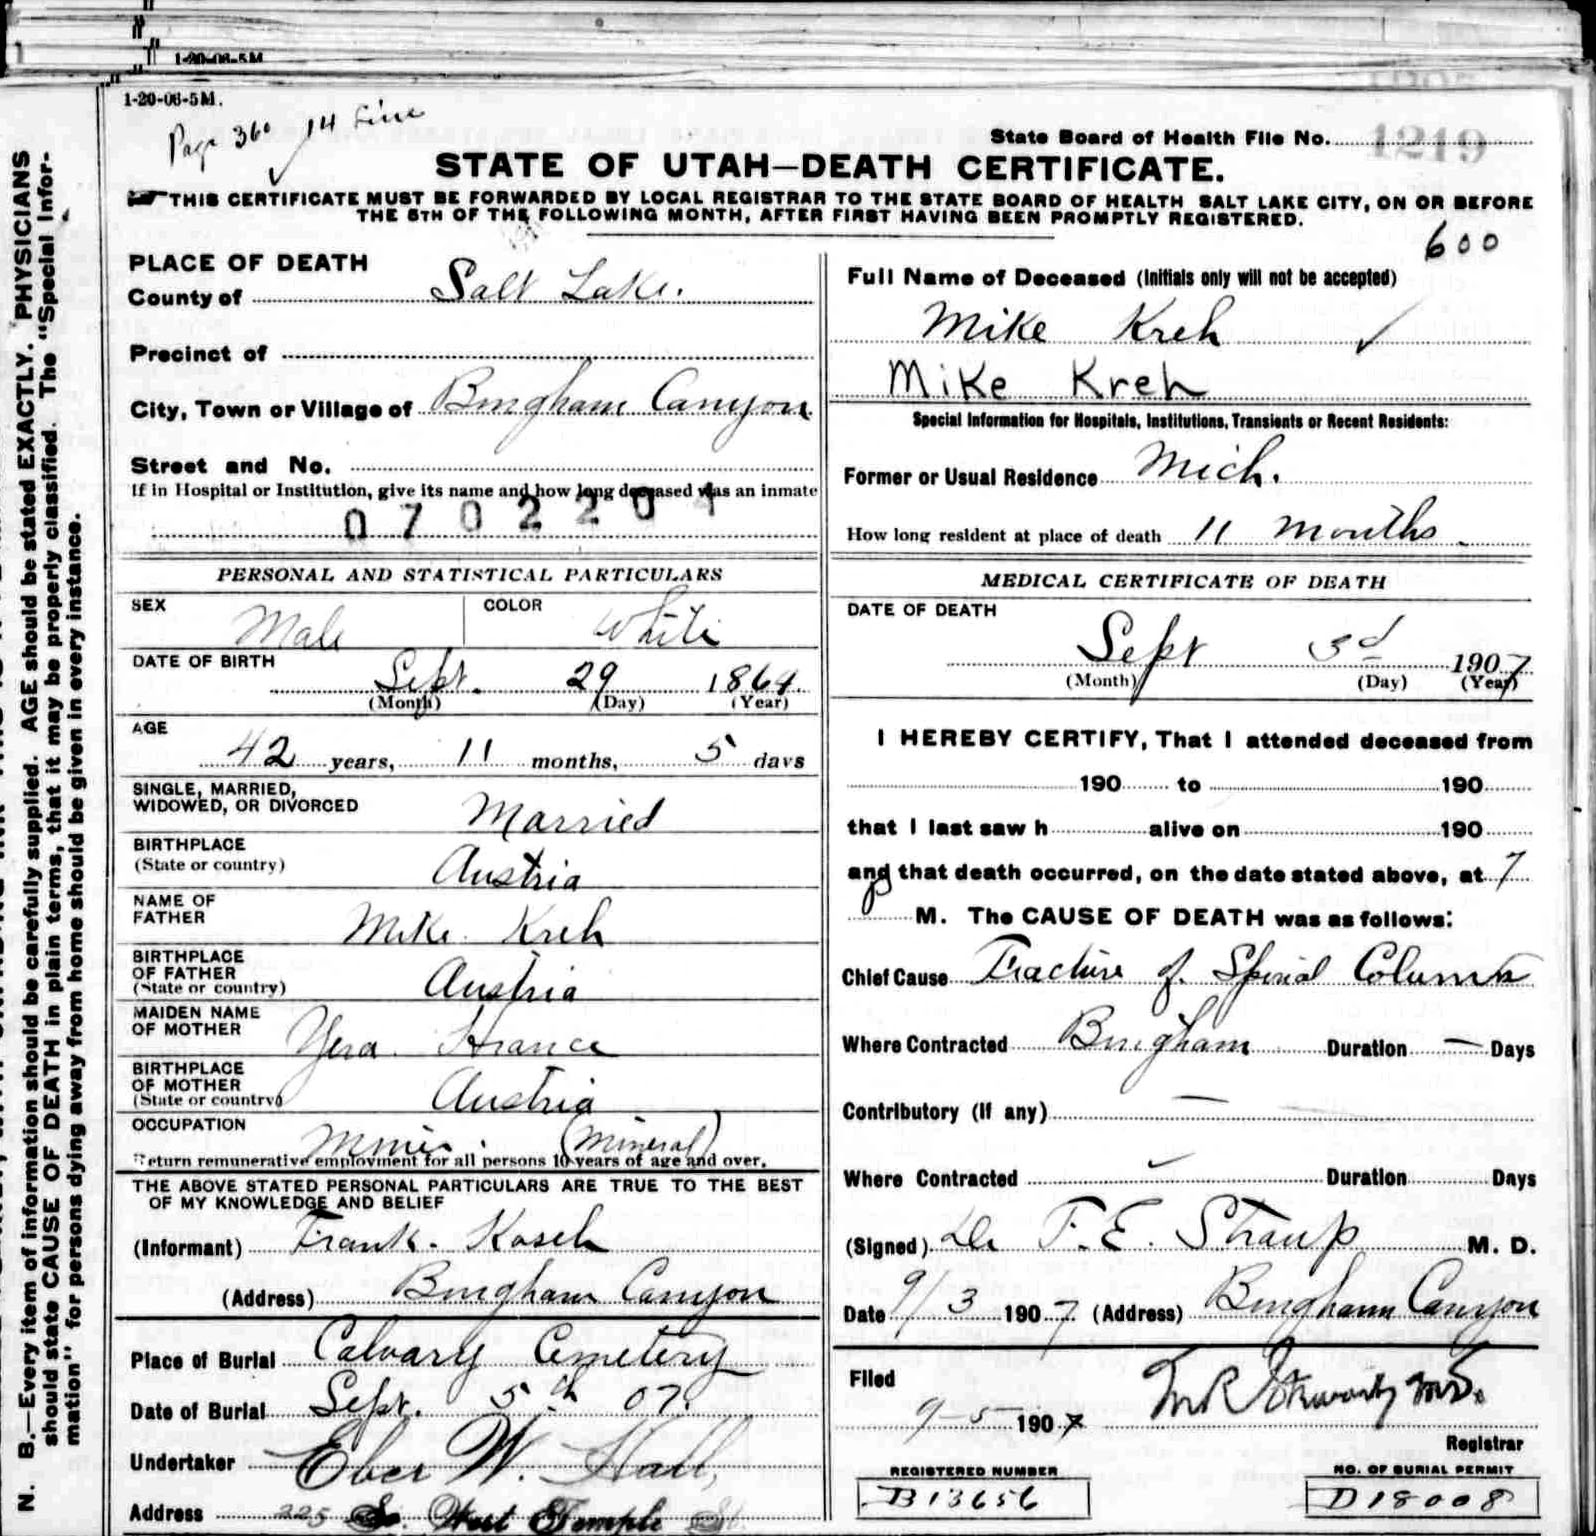 1-20-06-5M
1-20-06-5M.
Page 360 14 Line
State Board of Health File No. 1219
STATE OF UTAH—DEATH CERTIFICATE.
THIS CERTIFICATE MUST BE FORWARDED BY LOCAL REGISTRAR TO THE STATE BOARD OF HEALTH SALT LAKE CITY, ON OR BEFORE
THE 5TH OF THE FOLLOWING MONTH, AFTER FIRST HAVING BEEN PROMPTLY REGISTERED.
600
N. B.—Every item of information should be carefully supplied. AGE should be stated EXACTLY. PHYSICIANS
should state CAUSE OF DEATH in plain terms, that it may be properly classified. The "Special Infor-
mation" for persons dying away from home should be given in every instance.
PLACE OF DEATH
County of Salt Lake.
Precinct of
City, Town or Village of Bingham Canyon
Street and No.
If in Hospital or Institution, give its name and how long deceased was an inmate
0702204
PERSONAL AND STATISTICAL PARTICULARS
SEX Male COLOR White
DATE OF BIRTH
Sept. 29 1864.
(Month) (Day) (Year)
AGE
42 years, 11 months, 5 days
SINGLE, MARRIED,
WIDOWED, OR DIVORCED Married
BIRTHPLACE
(State or country) Austria
NAME OF
FATHER Mike Kreh
BIRTHPLACE
OF FATHER
(State or country) Austria
MAIDEN NAME
OF MOTHER
BIRTHPLACE
OF MOTHER
(State or country) Austria
OCCUPATION
Miner. (Mineral)
Return remunerative employment for all persons 10 years of age and over.
THE ABOVE STATED PERSONAL PARTICULARS ARE TRUE TO THE BEST
OF MY KNOWLEDGE AND BELIEF
(Informant) Frank. Koseh
(Address) Bingham Canyon
Place of Burial Calvary Cemetery
Date of Burial Sept. 5th 07.
Undertaker Eber W. Hall,
Address 225 So. West Temple St.
Full Name of Deceased (Initials only will not be accepted)
Mike Kreh
Mike Kreh
Special Information for Hospitals, Institutions, Transients or Recent Residents:
Former or Usual Residence Mich.
How long resident at place of death 11 months.
MEDICAL CERTIFICATE OF DEATH
DATE OF DEATH
Sept 3d 1907
(Month) (Day) (Year)
I HEREBY CERTIFY, That I attended deceased from
190 to 190
that I last saw h alive on 190
and that death occurred, on the date stated above, at 7
p M. The CAUSE OF DEATH was as follows:
Chief Cause Fracture of Spinal Column
Where Contracted Bingham Duration — Days
Contributory (If any) —
Where Contracted Duration Days
(Signed) Dr F. E. Straup M. D.
Date 9/3 1907 (Address) Bingham Canyon
Filed
9-5-1907
Registrar
REGISTERED NUMBER
B13656
NO. OF BURIAL PERMIT
D18008